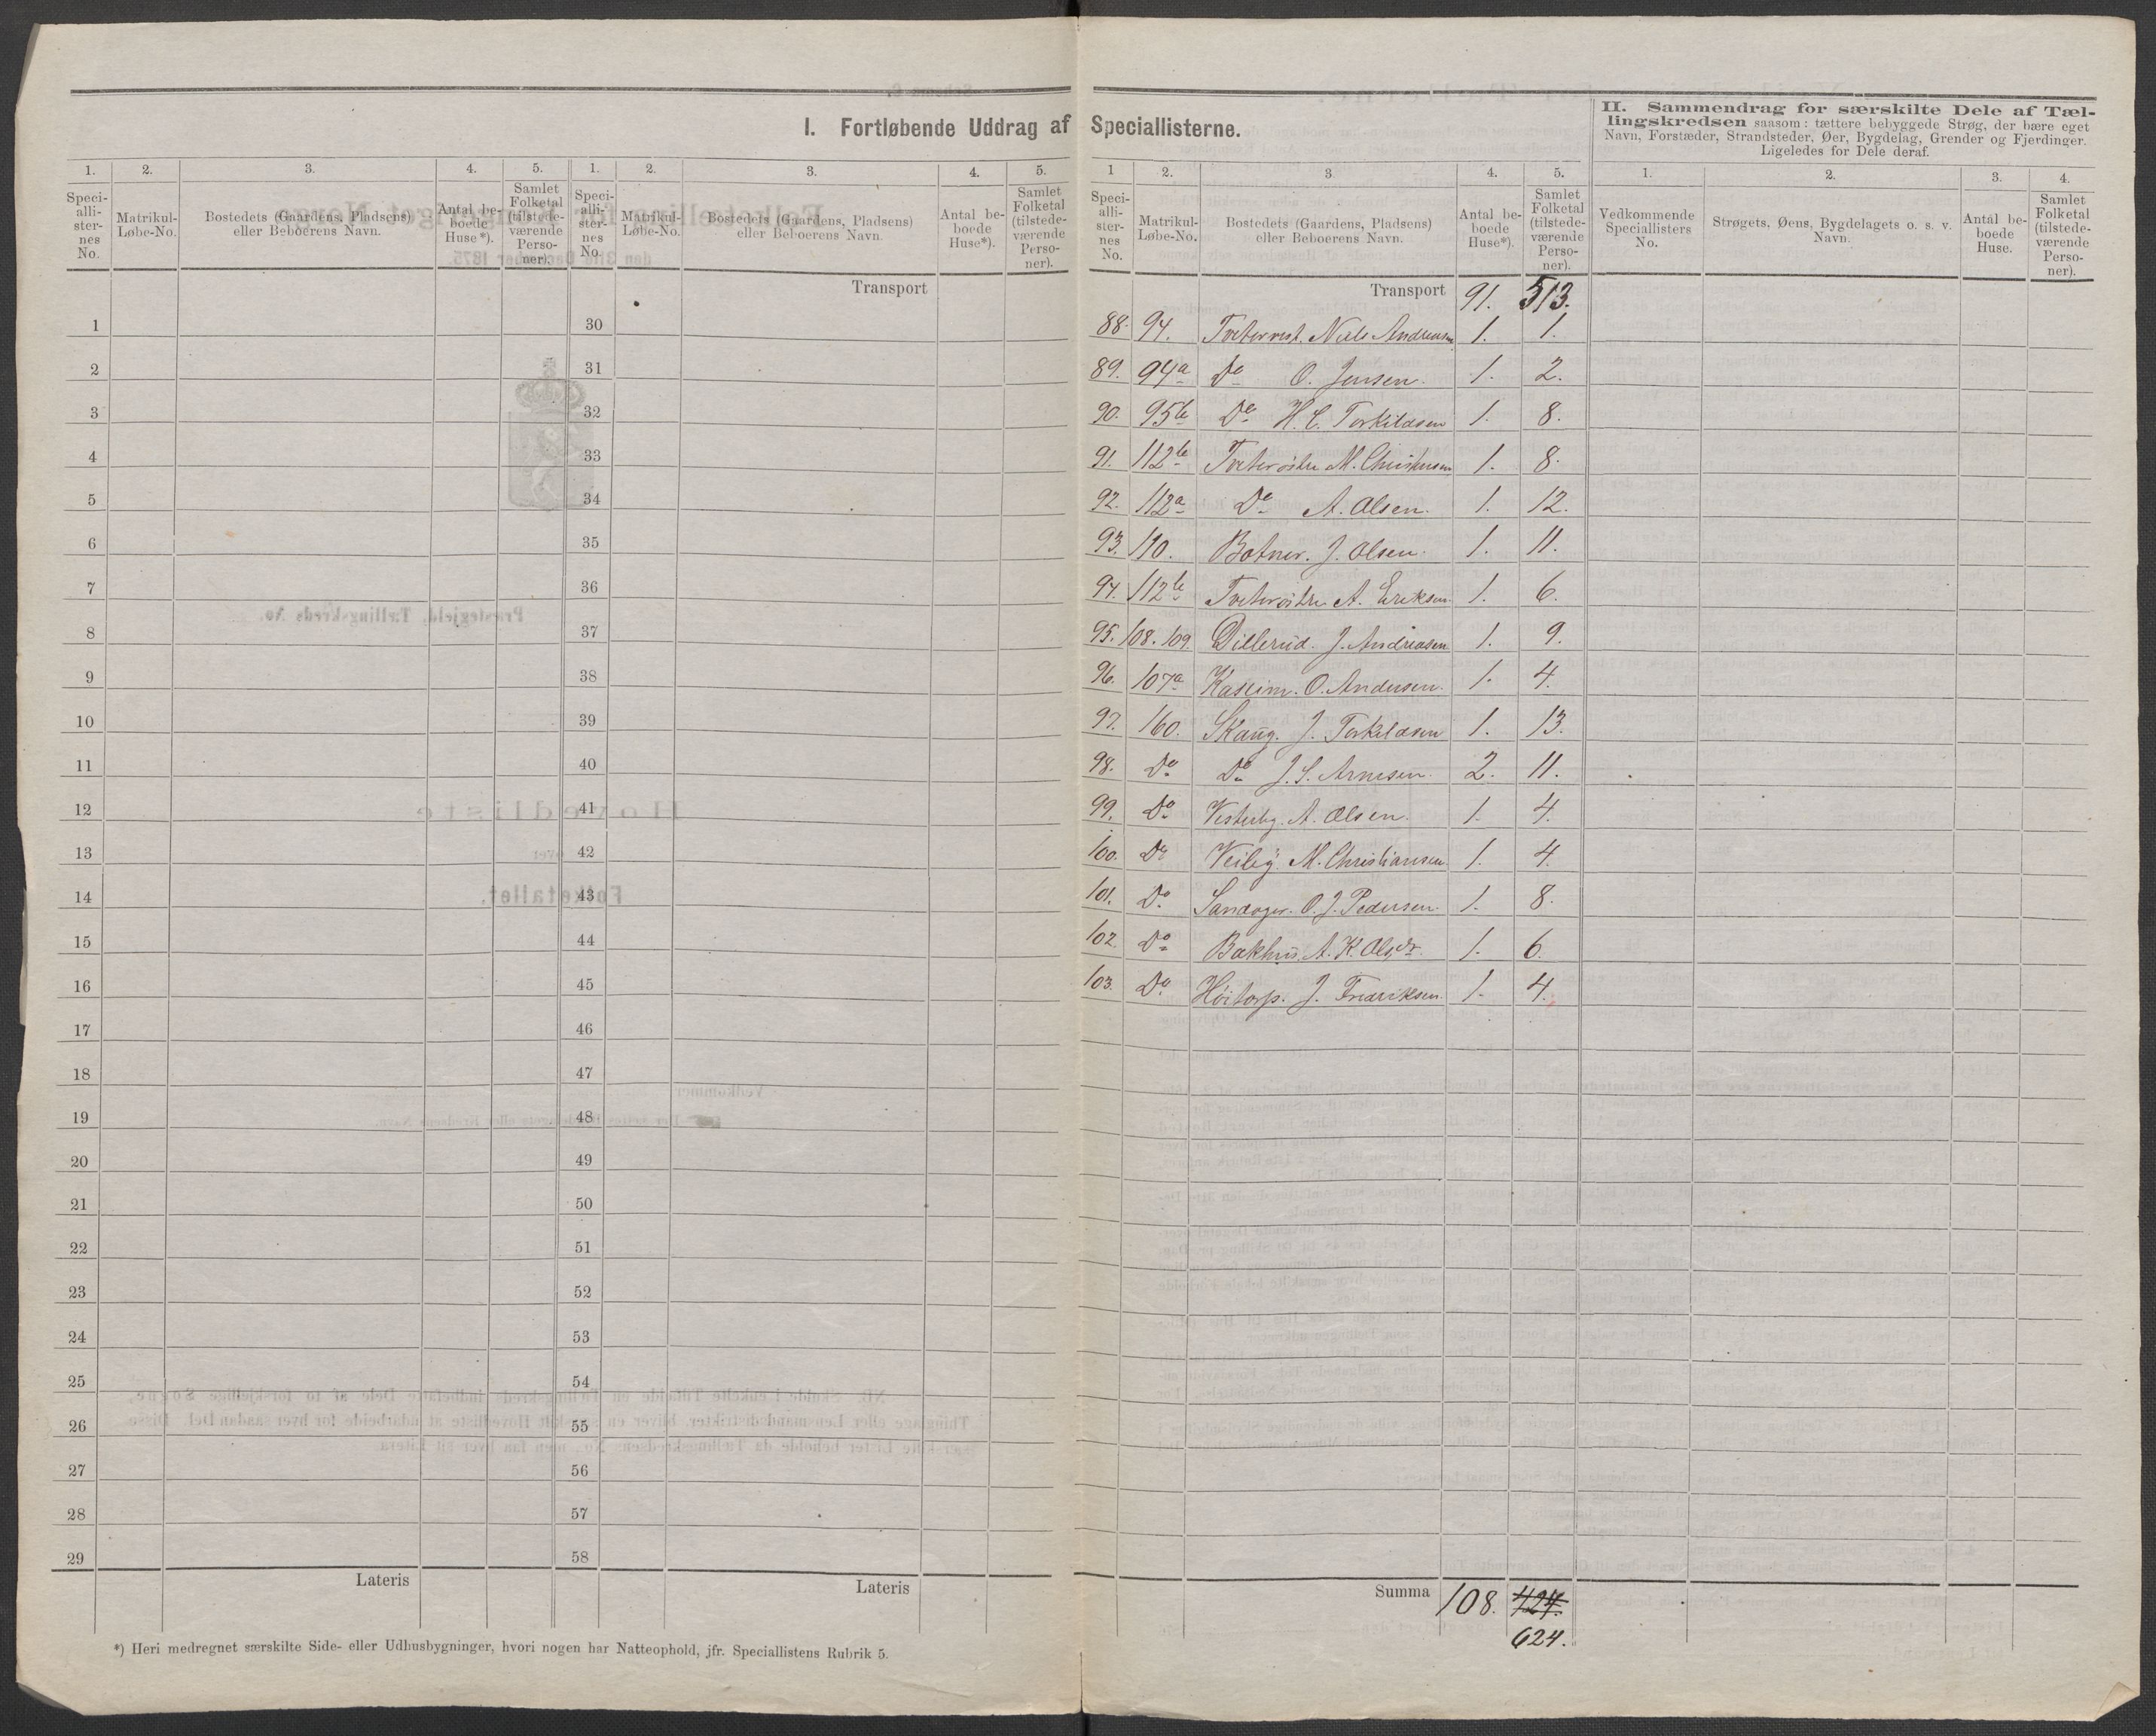 I. Fortløbende Uddrag af Speciallisterne.
II. Sammendrag for særskilte Dele af Tæl-
lingskredsen saasom: tættere bebyggede Strøg, der bære eget
Navn, Forstæder, Strandsteder, Øer, Bygdelag, Grender og Fjerdinger.
Ligeledes for Dele deraf.
1. 2. 3. 4. 5. 1. 2. 3. 4. 5. 1 2. 3 4. 5. 1. 2. 3. 4.
Speci-
alli-
ster-
nes
No.
Matrikul-
Løbe-No.
Bostedets (Gaardens, Pladsens)
eller Beboerens Navn.
Antal be-
boede
Huse*).
Samlet
Folketal
(tilstede-
værende
Perso-
ner).
Speci-
alli-
ster-
nes
No.
Matrikul-
Løbe-No.
Bostedets (Gaardens, Pladsens)
eller Beboerens Navn.
Antal be-
boede
Huse*).
Samlet
Folketal
(tilstede-
værende
Perso-
ner).
Speci-
alli-
ster-
nes
No.
Matrikul-
Løbe-No.
Bostedets (Gaardens, Pladsens)
eller Beboerens Navn.
Antal be-
boede
Huse*).
Samlet
Folketal
(tilstede-
værende
Perso-
ner).
Vedkommende
Speciallisters
No.
Strøgets, Øens, Bygdelagets o. s. v.
Navn.
Antal be-
boede
Huse.
Samlet
Folketal
(tilstede-
værende
Perso-
ner).
Transport
1 30
2 31
3 32
4 33
5 34
6 35
7 36
8 37
9 38
10 39
11 40
12 41
13 42
14 43
15 44
16 45
17 46
18 47
19 48
20 49
21 50
22 51
23 52
24 53
25 54
26 55
27 56
28 57
29 58
Lateris Lateris
Transport 91. 513.
88. 94. Tvetervest. Niels Andreasen 1. 1.
89. 94a Do O. Jensen. 1. 2.
90. 95b Do H. C. Torkildsen 1. 8.
91. 112b Tveterøstre M. 1. 8.
92. 112a Do A. Olsen. 1. 12.
93. 110. Botner. J. Olsen. 1. 11.
94. 112b Tveterøstre A. Eriksen. 1. 6.
95. 108. 109. Dillerud. J. Andreasen 1. 9.
96. 107a O. Andersen. 1. 4.
97. 160. Skaug. J. Torkildsen 1. 13.
98. Do Do J. S. Arnesen. 2. 11.
99. Do Vesterby. A. Olsen. 1. 4.
100. Do Veiby. M. Christiansen. 1. 4.
101. Do O. J. Pedersen. 1. 8.
102. Do Bakhus. A. K. Olsdr. 1. 6.
103. Do Høitorp. J. Fredriksen. 1. 4.
Summa 108. 424.
624.
*) Heri medregnet særskilte Side- eller Udhusbygninger, hvori nogen har Natteophold, jfr. Speciallistens Rubrik 5.